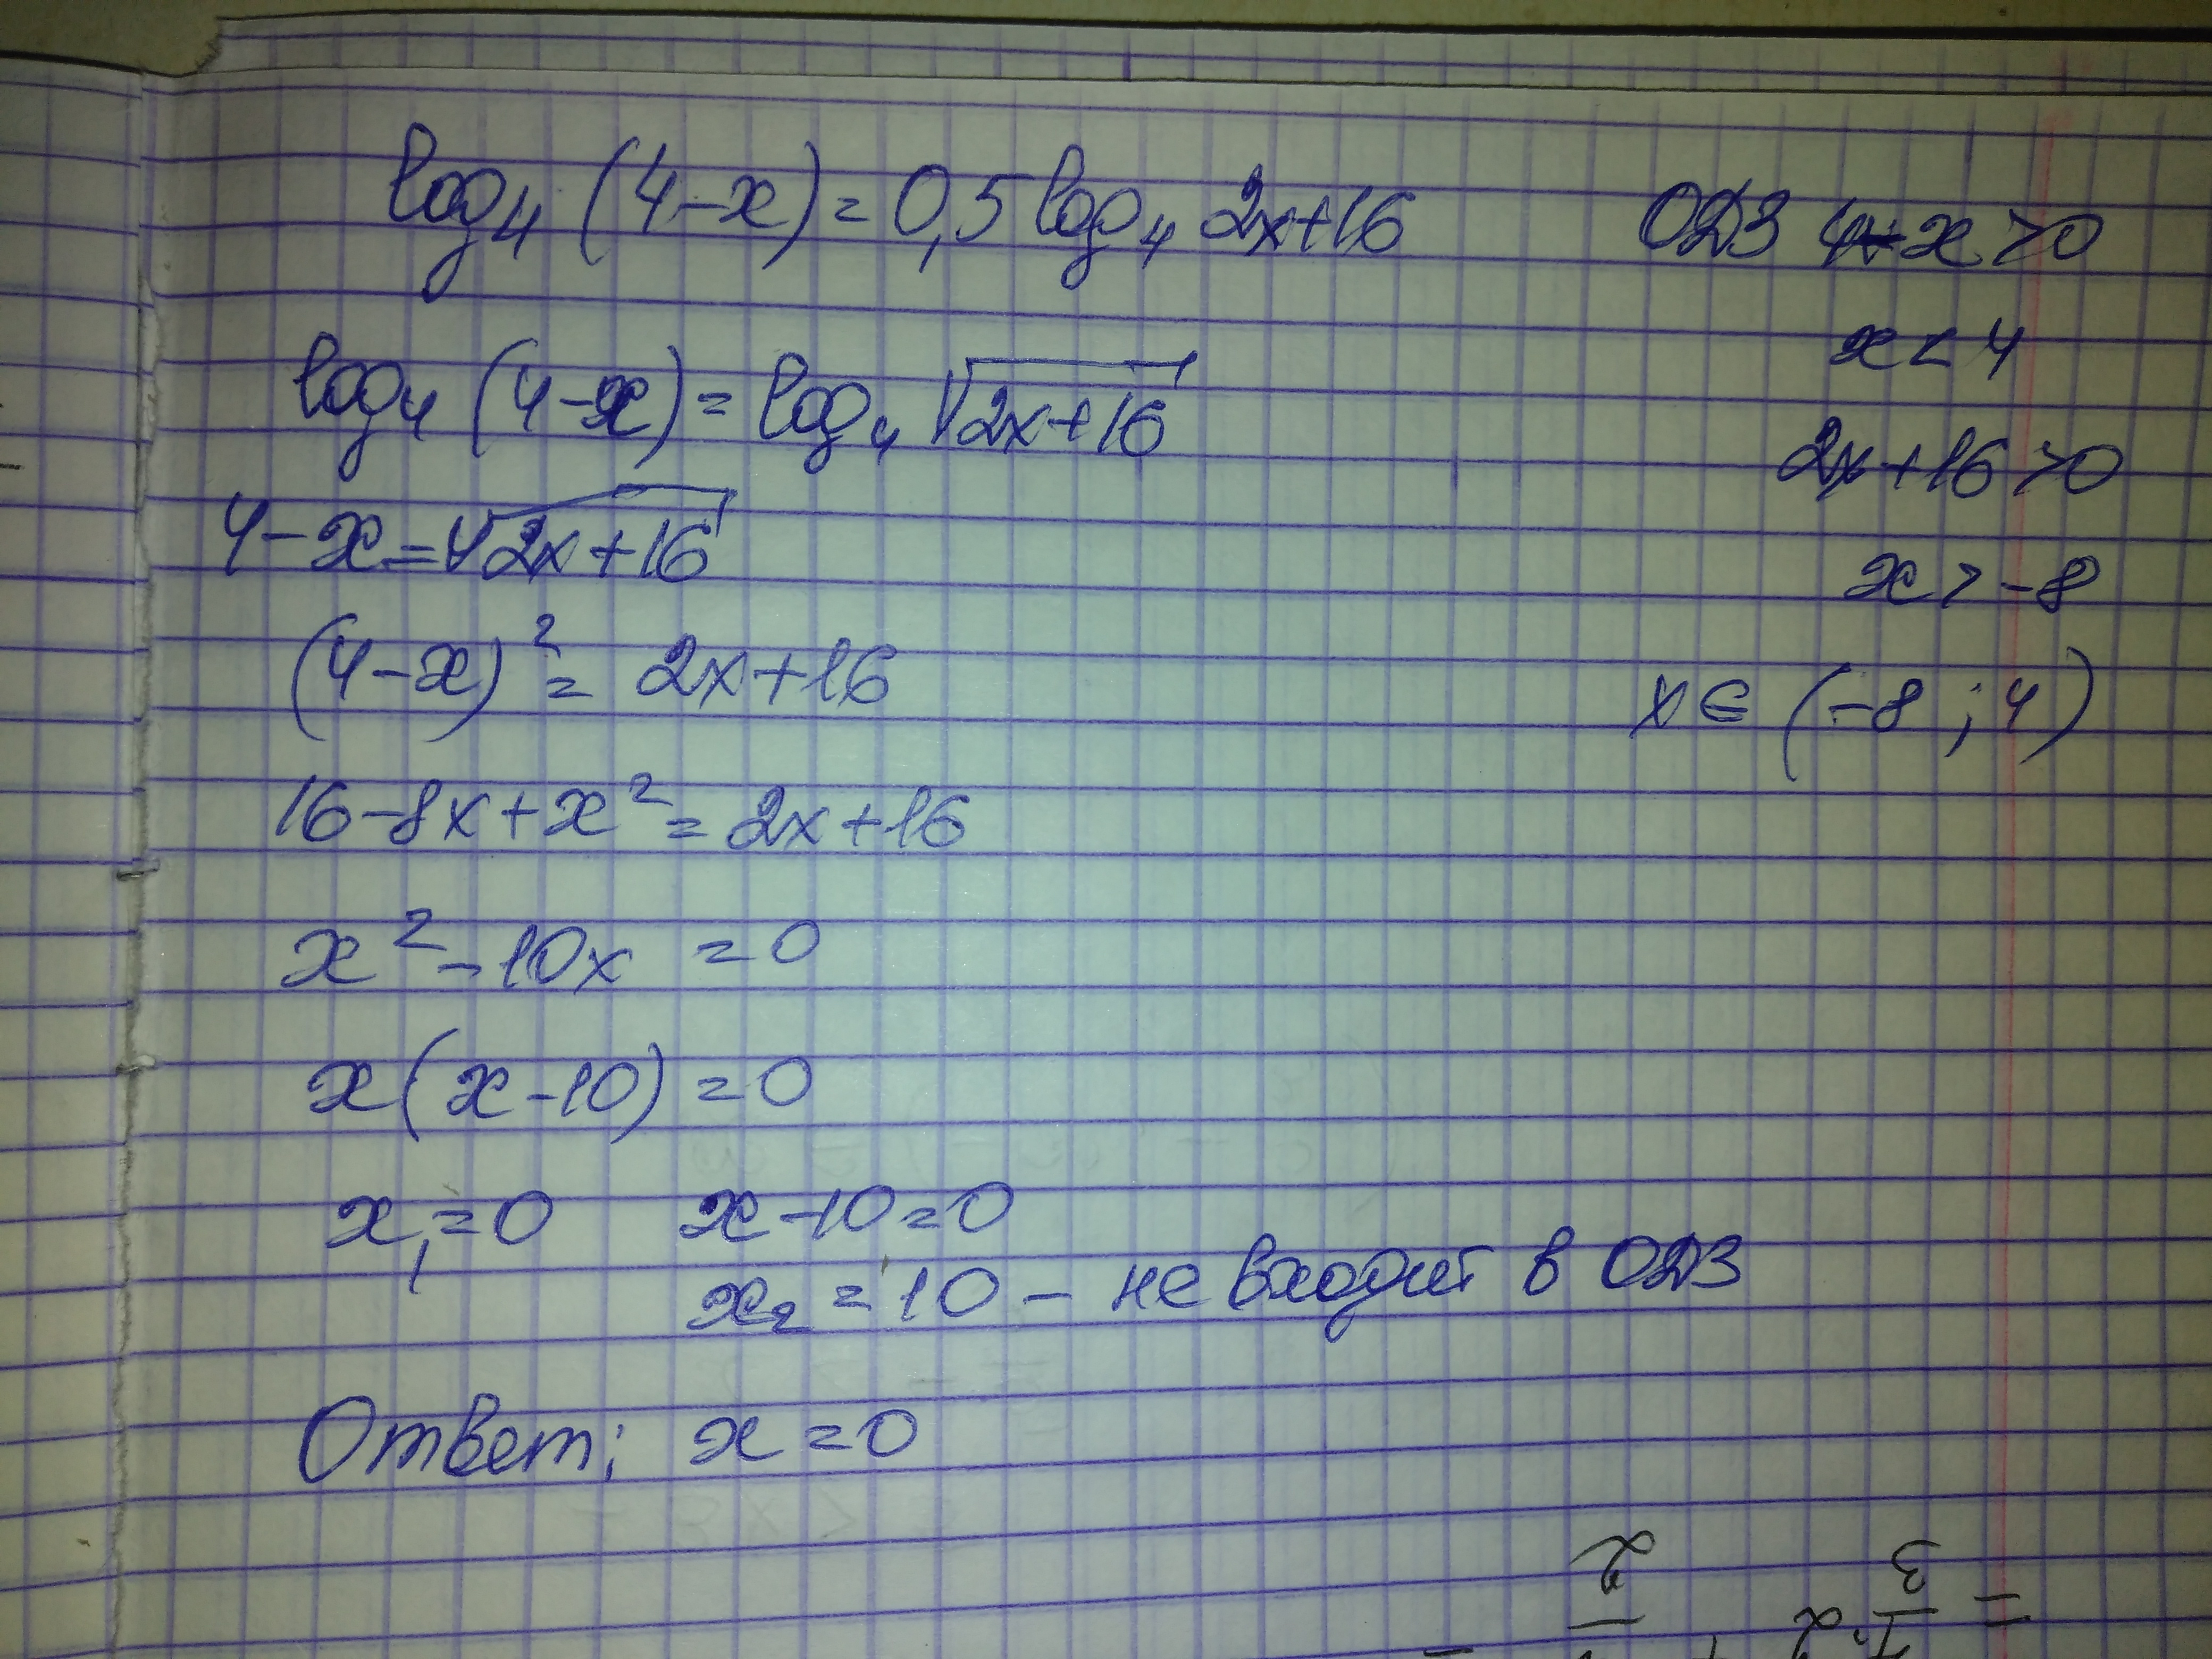 log₄ (4-x) = 0,5 log₄ 2x+16
ОДЗ 4-x >0
x < 4
2x+16 >0
x > -8
x ∈ (-8 ; 4)
log₄ (4-x) = log₄ √(2x+16)
4-x = √(2x+16)
(4-x)² = 2x+16
16-8x+x² = 2x+16
x² -10x = 0
x(x-10) = 0
x₁ = 0 x-10=0
x₂ = 10 - не входит в ОДЗ
Ответ: x = 0